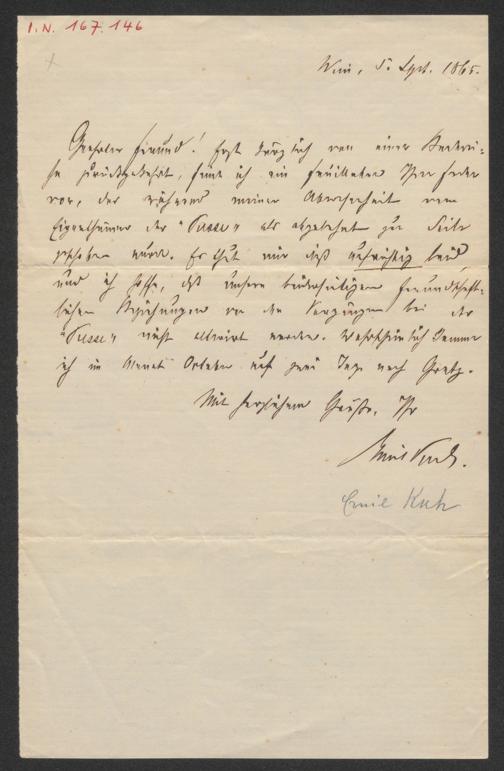 I.N. 167.146
Wien, 5. Sept. 1865.
Geehrter Freund! Erst kürzlich von einer Badrei-
se zurückgekehrt, finde ich ein Feuilleton Ihrer Feder
vor, das während meiner Abwesenheit vom
Eigenthümer der "Presse" als abgelehnt zur Seite
geschoben wurde. Es thut mir dieß aufrichtig leid
und ich hoffe, daß unsere beiderseitigen freundschaft-
lichen Beziehungen von den Vorgängen bei der
"Presse" nicht alterirt werden. Wahrscheinlich komme
ich im Monat October auf zwei Tage nach Gratz.
Mit herzlichem Gruße, Ihr
Emil Kuh.
Emil Kuh